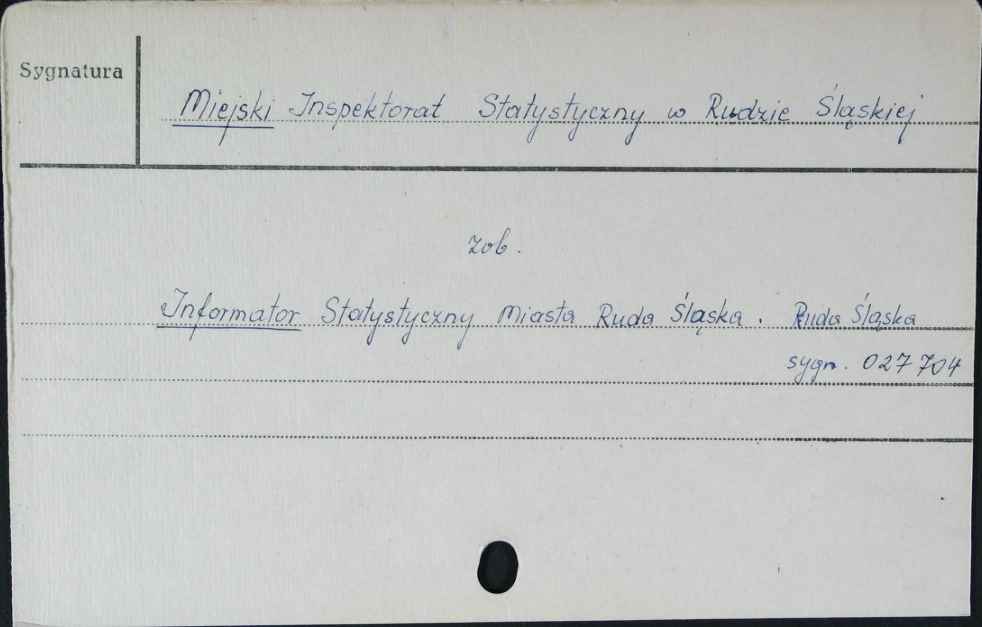 Sygnatura
Miejski Inspektorat Statystyczny w Rudzie Śląskiej
zob.
Informator Statystyczny Miasta Ruda Śląska. Ruda Śląska
sygn. 027 704